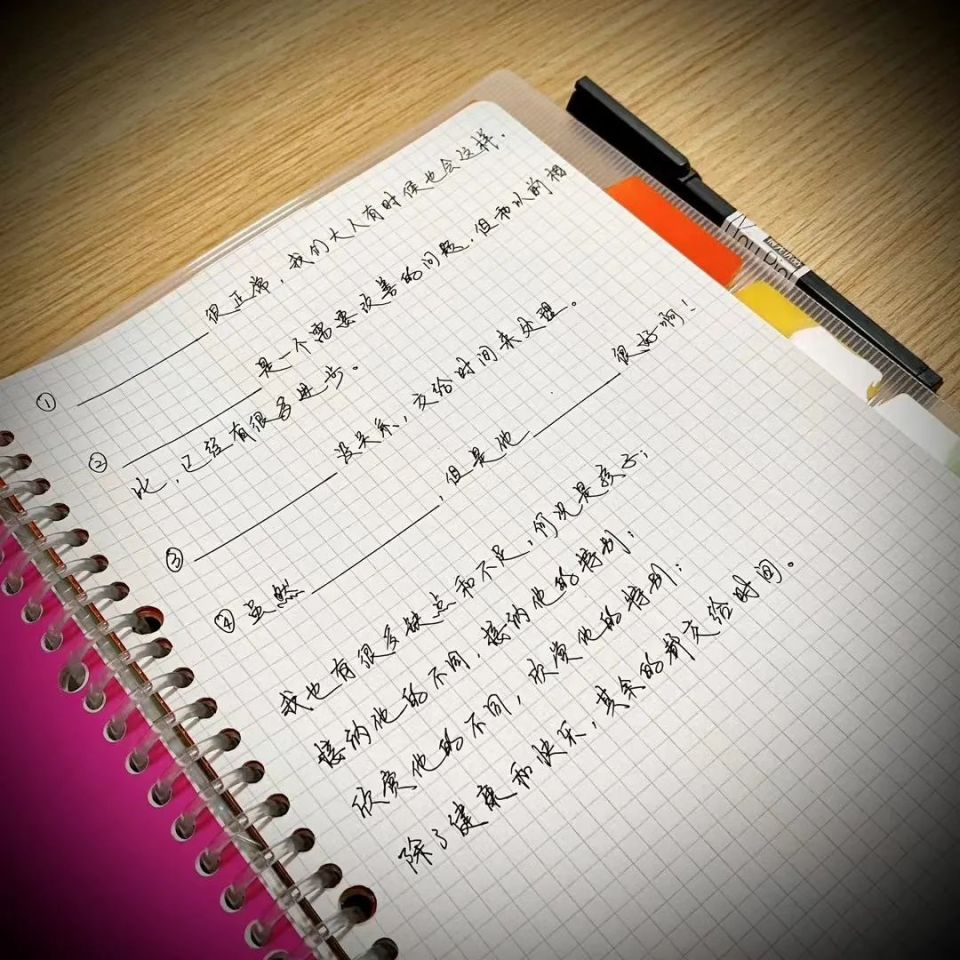 ① ________很正常，我们大人有时候也会这样．
② ________是一个需要改善的问题．但和以前相
比，已经有很多进步。
③ ________没关系，交给时间来处理。
④ 虽然________，但是他________很好啊！
我也有很多缺点和不足，何况是孩子；
接纳他的不同，接纳他的特别；
欣赏他的不同，欣赏他的特别；
除了健康和快乐，其余的都交给时间。